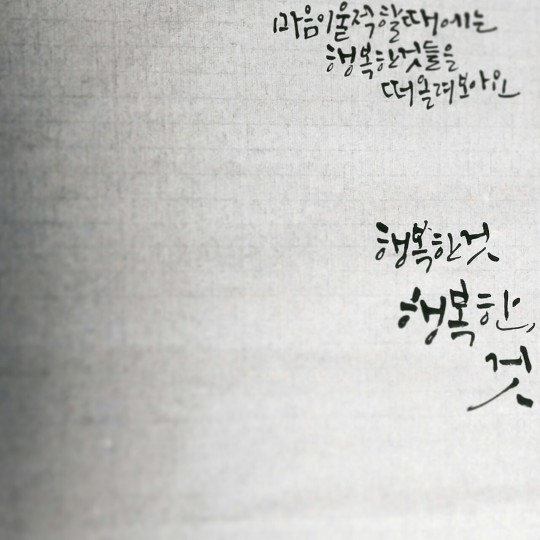 마음이울적할때에는
행복한것들을
떠올려보아요
행복한것
행복한,
것